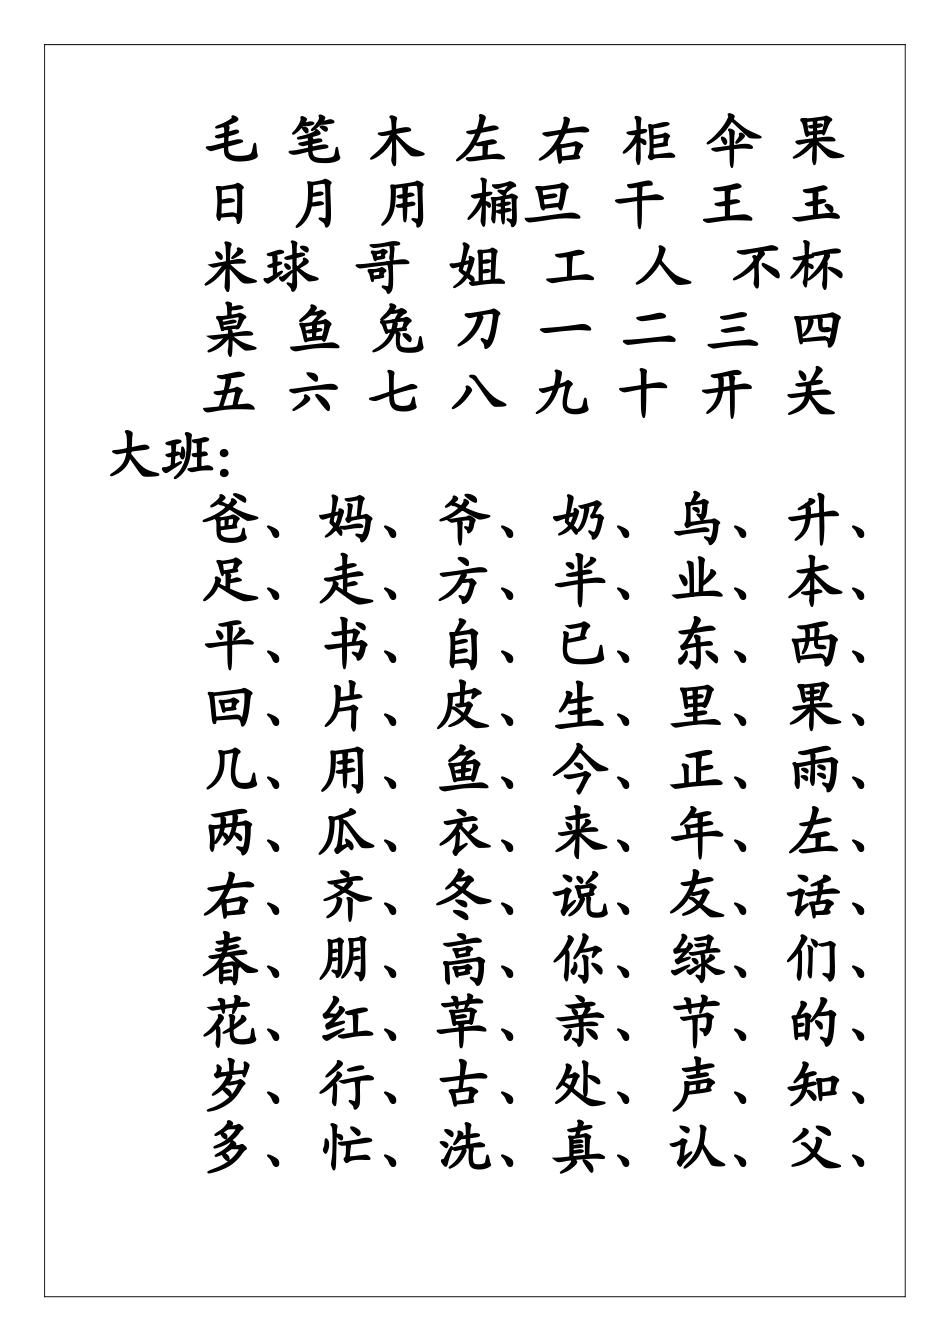 毛 笔 木 左 右 柜 伞 果
日 月 用 桶旦 干 王 玉
米球 哥 姐 工 人 不杯
桌 鱼 兔 刀 一 二 三 四
五 六 七 八 九 十 开 关
大班：
爸、妈、爷、奶、鸟、升、
足、走、方、半、业、本、
平、书、自、已、东、西、
回、片、皮、生、里、果、
几、用、鱼、今、正、雨、
两、瓜、衣、来、年、左、
右、齐、冬、说、友、话、
春、朋、高、你、绿、们、
花、红、草、亲、节、的、
岁、行、古、处、声、知、
多、忙、洗、真、认、父、